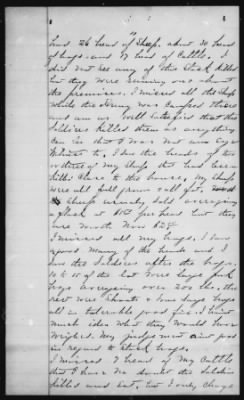 had 26 head of Sheep. about 30 head
of hogs. and 17 head of Cattle. I
did not see any of this Stock killed
but they were running out about
the premises. I missed all the Sheep
while the Army was camped there
and am as well satisfied that the
Soldiers killed them as anything
can be that I was not an eye
Witness to. I saw the heads of two
or three of my Sheep that had been
killed close to the house, my Sheep
were all full grown & all fat.
Sheep usually sold averaging
a piece at $1.50 per head but they
are worth now
I missed all my hogs. I saw
of the heads and I
saw the Soldiers after the hogs.
10 to 15 of the lot were large pork
hogs averaging over 200 lbs. the
rest were Shoats & some large hogs
all in tolerable good fix. I have
much idea what they would have
weighed. My judgement aint good
in regard to Stock hogs.
I missed 7 head of My Cattle
that I have no doubt the Soldiers
killed and eat, but I only charge